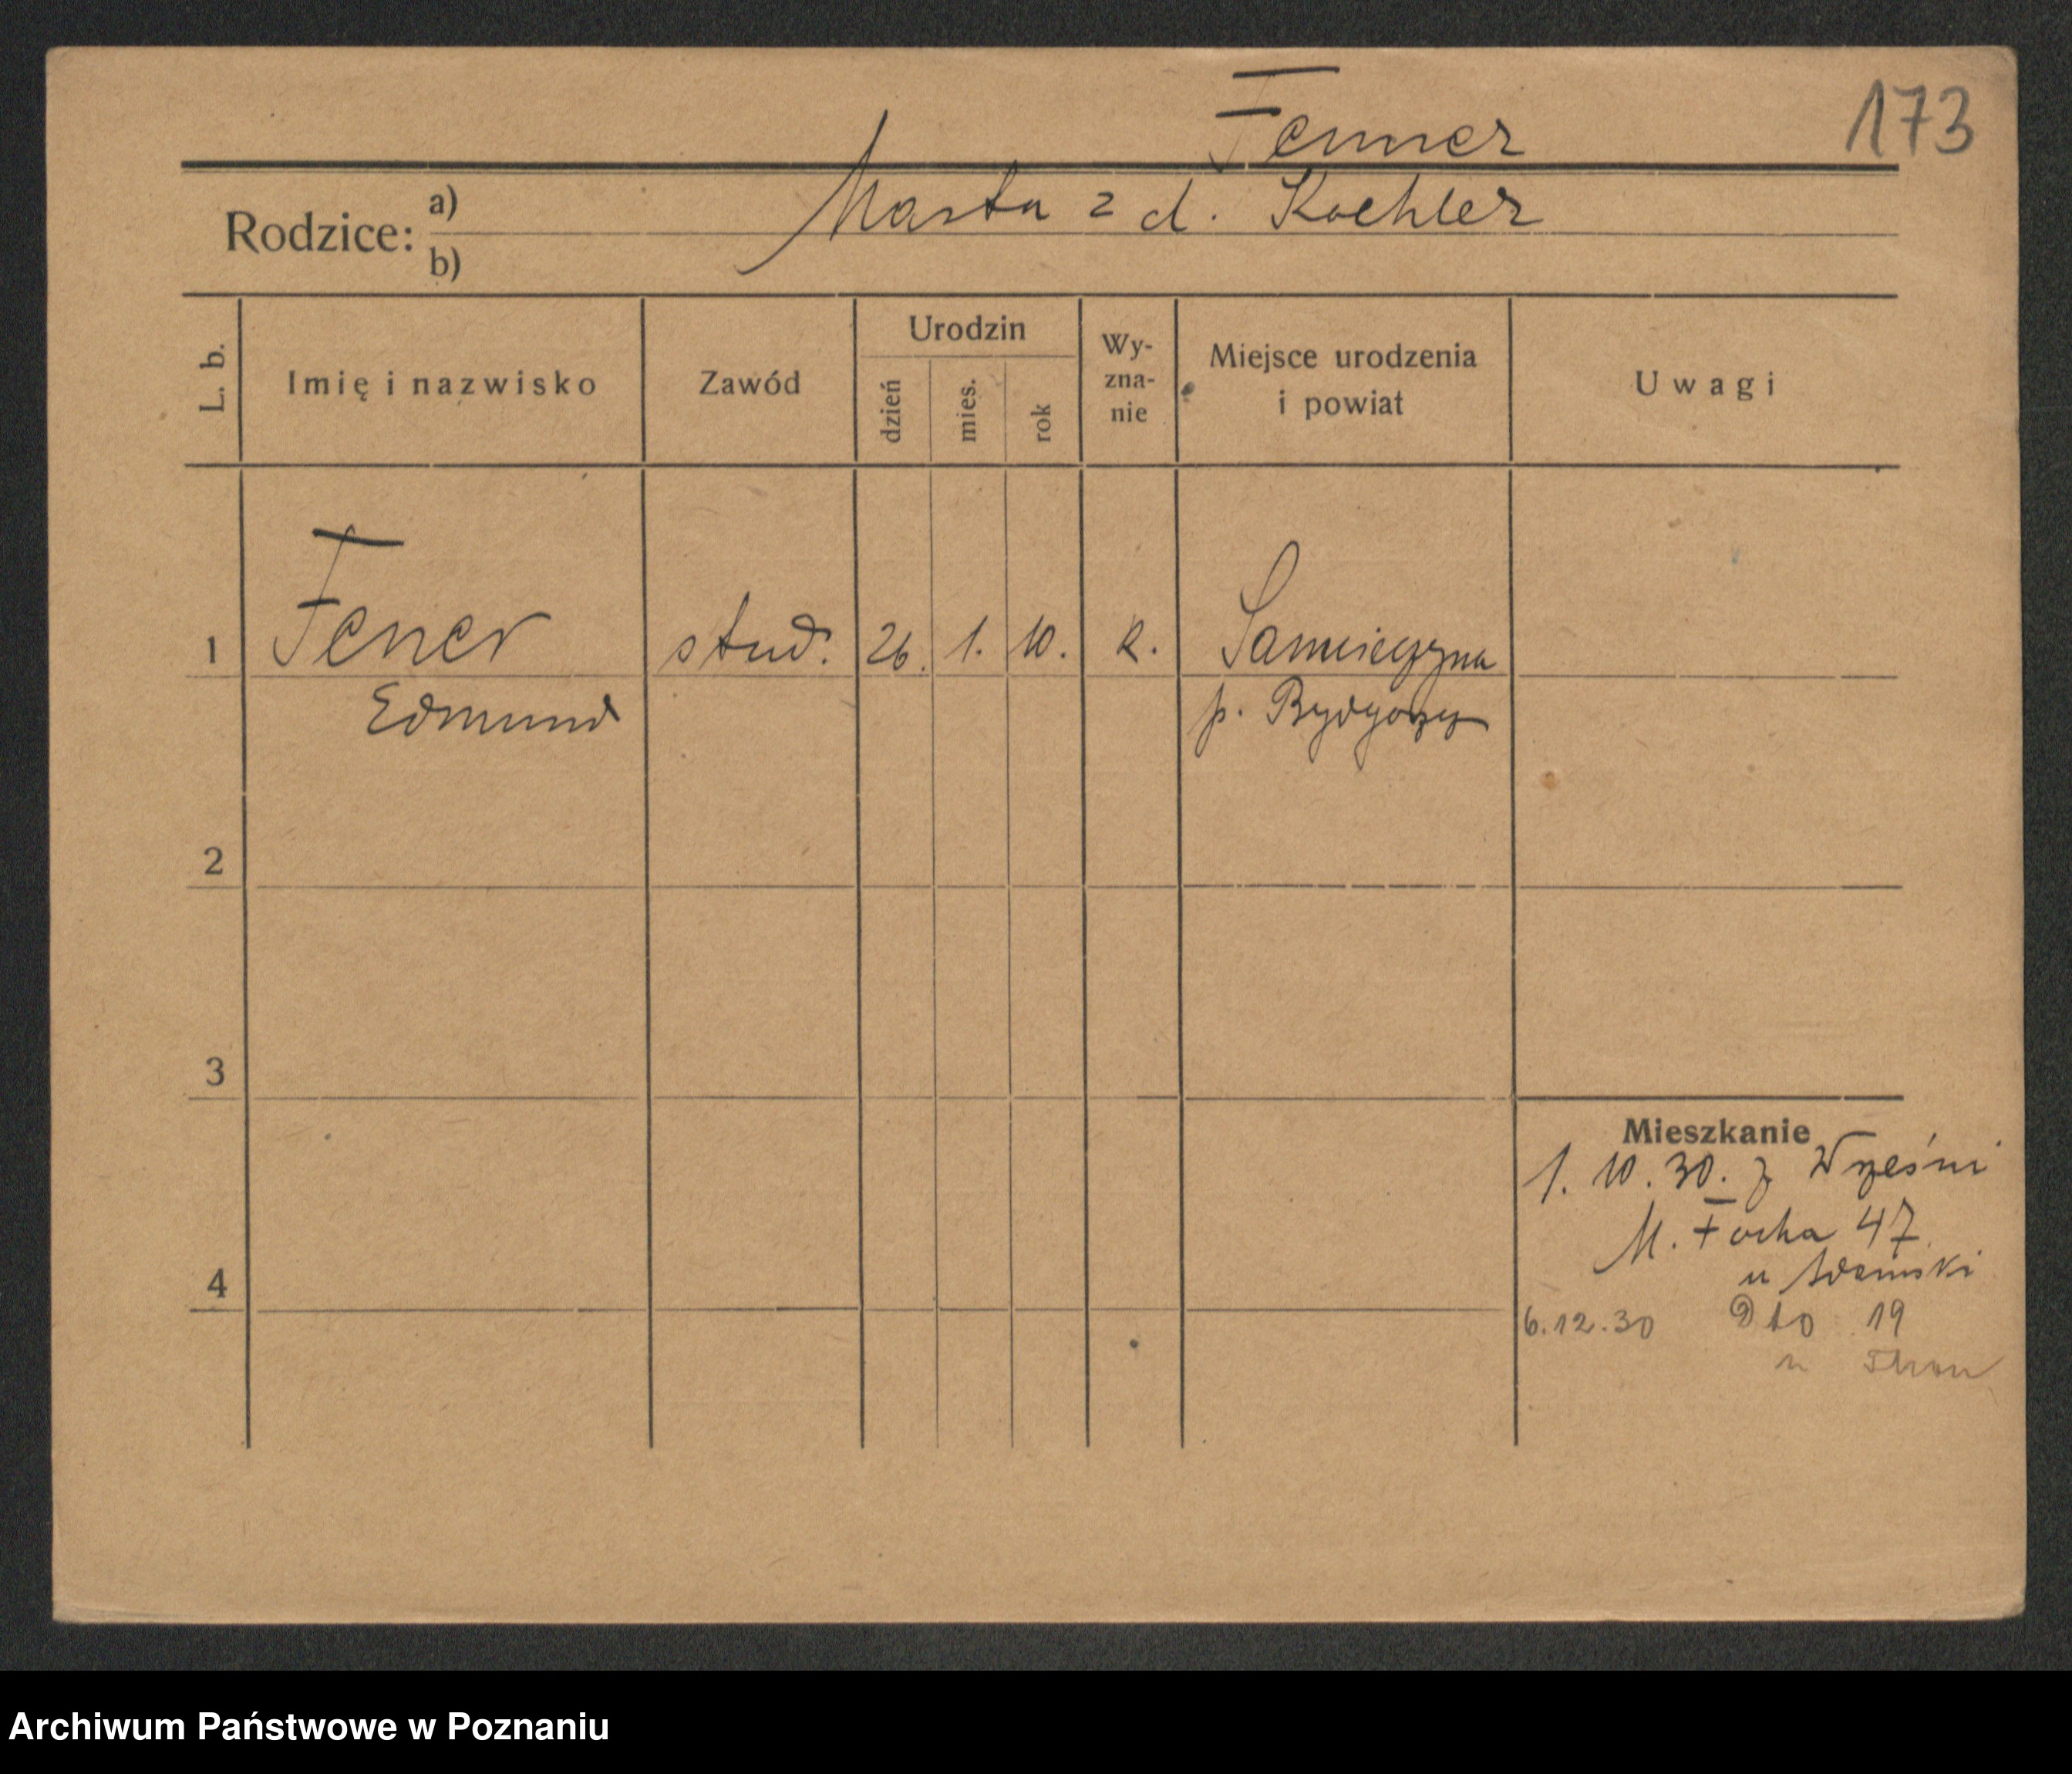 173
Fenner
Rodzice: a) Marta z d. Koehler
b)
L. b. Imię i nazwisko Zawód Urodzin dzień mies. rok Wy-zna-nie Miejsce urodzenia i powiat Uwagi
1 Fener stud. 26. 1. 10. k. Samieczyna
Edmund p. Bydgoszcz
2
3
Mieszkanie
1. 10. 30. z Wześni
M. Focha 47
4 u Adamski
6.12.30 dto 19
u
Archiwum Państwowe w Poznaniu